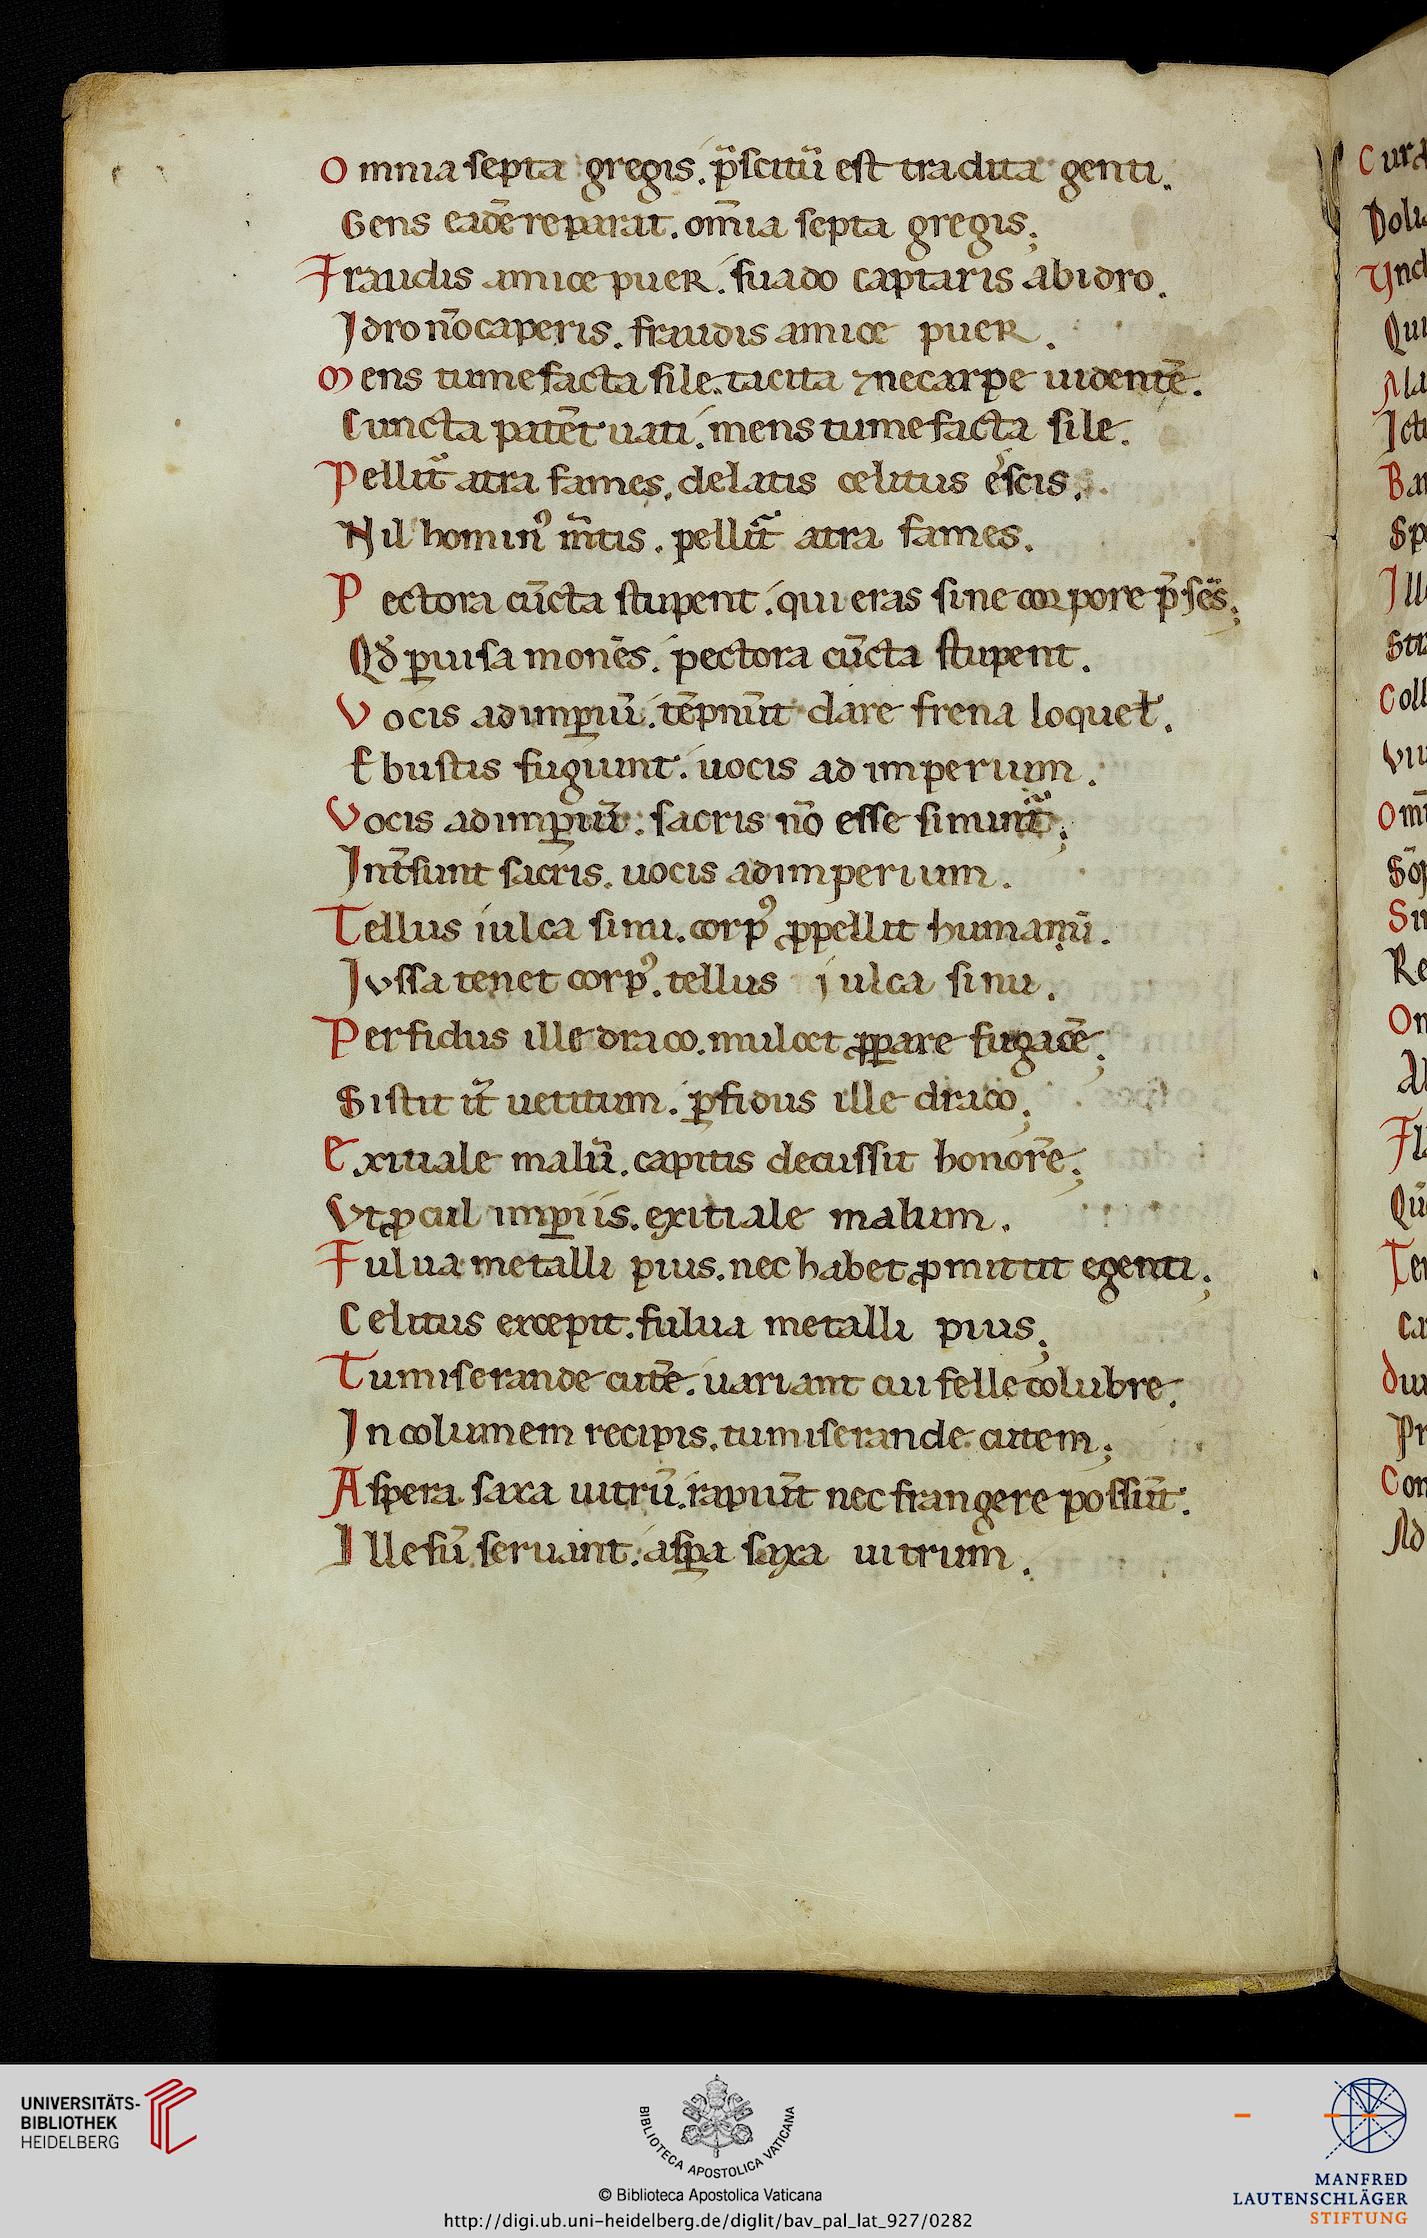 Omnia septa gregis. p̄scitū est tradita genti.
Gens eadē reparat. om̄ia septa gregis;
Fraudis amice puer. suado captaris abidro.
Idro nō caperis. fraudis amice puer.
Mens tumefacta sile. tacita ⁊ne carpe uidentē.
Cuncta patēt uati. mens tumefacta sile.
Pellit᷑ atra fames. delatis celitus escis.
Nil homin᷒ m̄tis. pellit᷑ atra fames.
Pectora cūcta stupent. qui eras sine corpore p̄sēs;
Qđ ꝑuisa monēs. pectora cūcta stupent.
Vocis ad imꝑiū. tēpnūt dare frena loqueł.
E bustis fugiunt. uocis ad imperium.
Vocis ad imꝑiū. sacris nō esse sinunt᷑;
Int̄sunt sacris. uocis ad imperium.
Tellus iulca sinu. corp᷒ ꝓpellit humanū.
Iussa tenet corp᷒. tellus iulca sinu.
Perfidus ille draco. mulcet ꝓꝑare fugacē;
Sistit it̄ uetitum. ꝑfidus ille draco;
Exitiale malū. capitis decussit honorē;
Vt ꝓcul imꝑiis. exitiale malum.
Fulua metalli pius. nec habet ꝓmittit egenti;
Celitus excepit. fulua metalli pius;
Tu miserande cutē. uariant cui felle colubre;
Incolumem recipis. tu miserande cutem;
Aspera saxa uitrū. rapiūt nec frangere possūt.
Ille sū seruant. asꝑa saxa uitrum.
UNIVERSITÄTS-
BIBLIOTHEK
HEIDELBERG
BIBLIOTECA APOSTOLICA VATICANA
© Biblioteca Apostolica Vaticana
http://digi.ub.uni-heidelberg.de/diglit/bav_pal_lat_927/0282
MANFRED
LAUTENSCHLÄGER
STIFTUNG